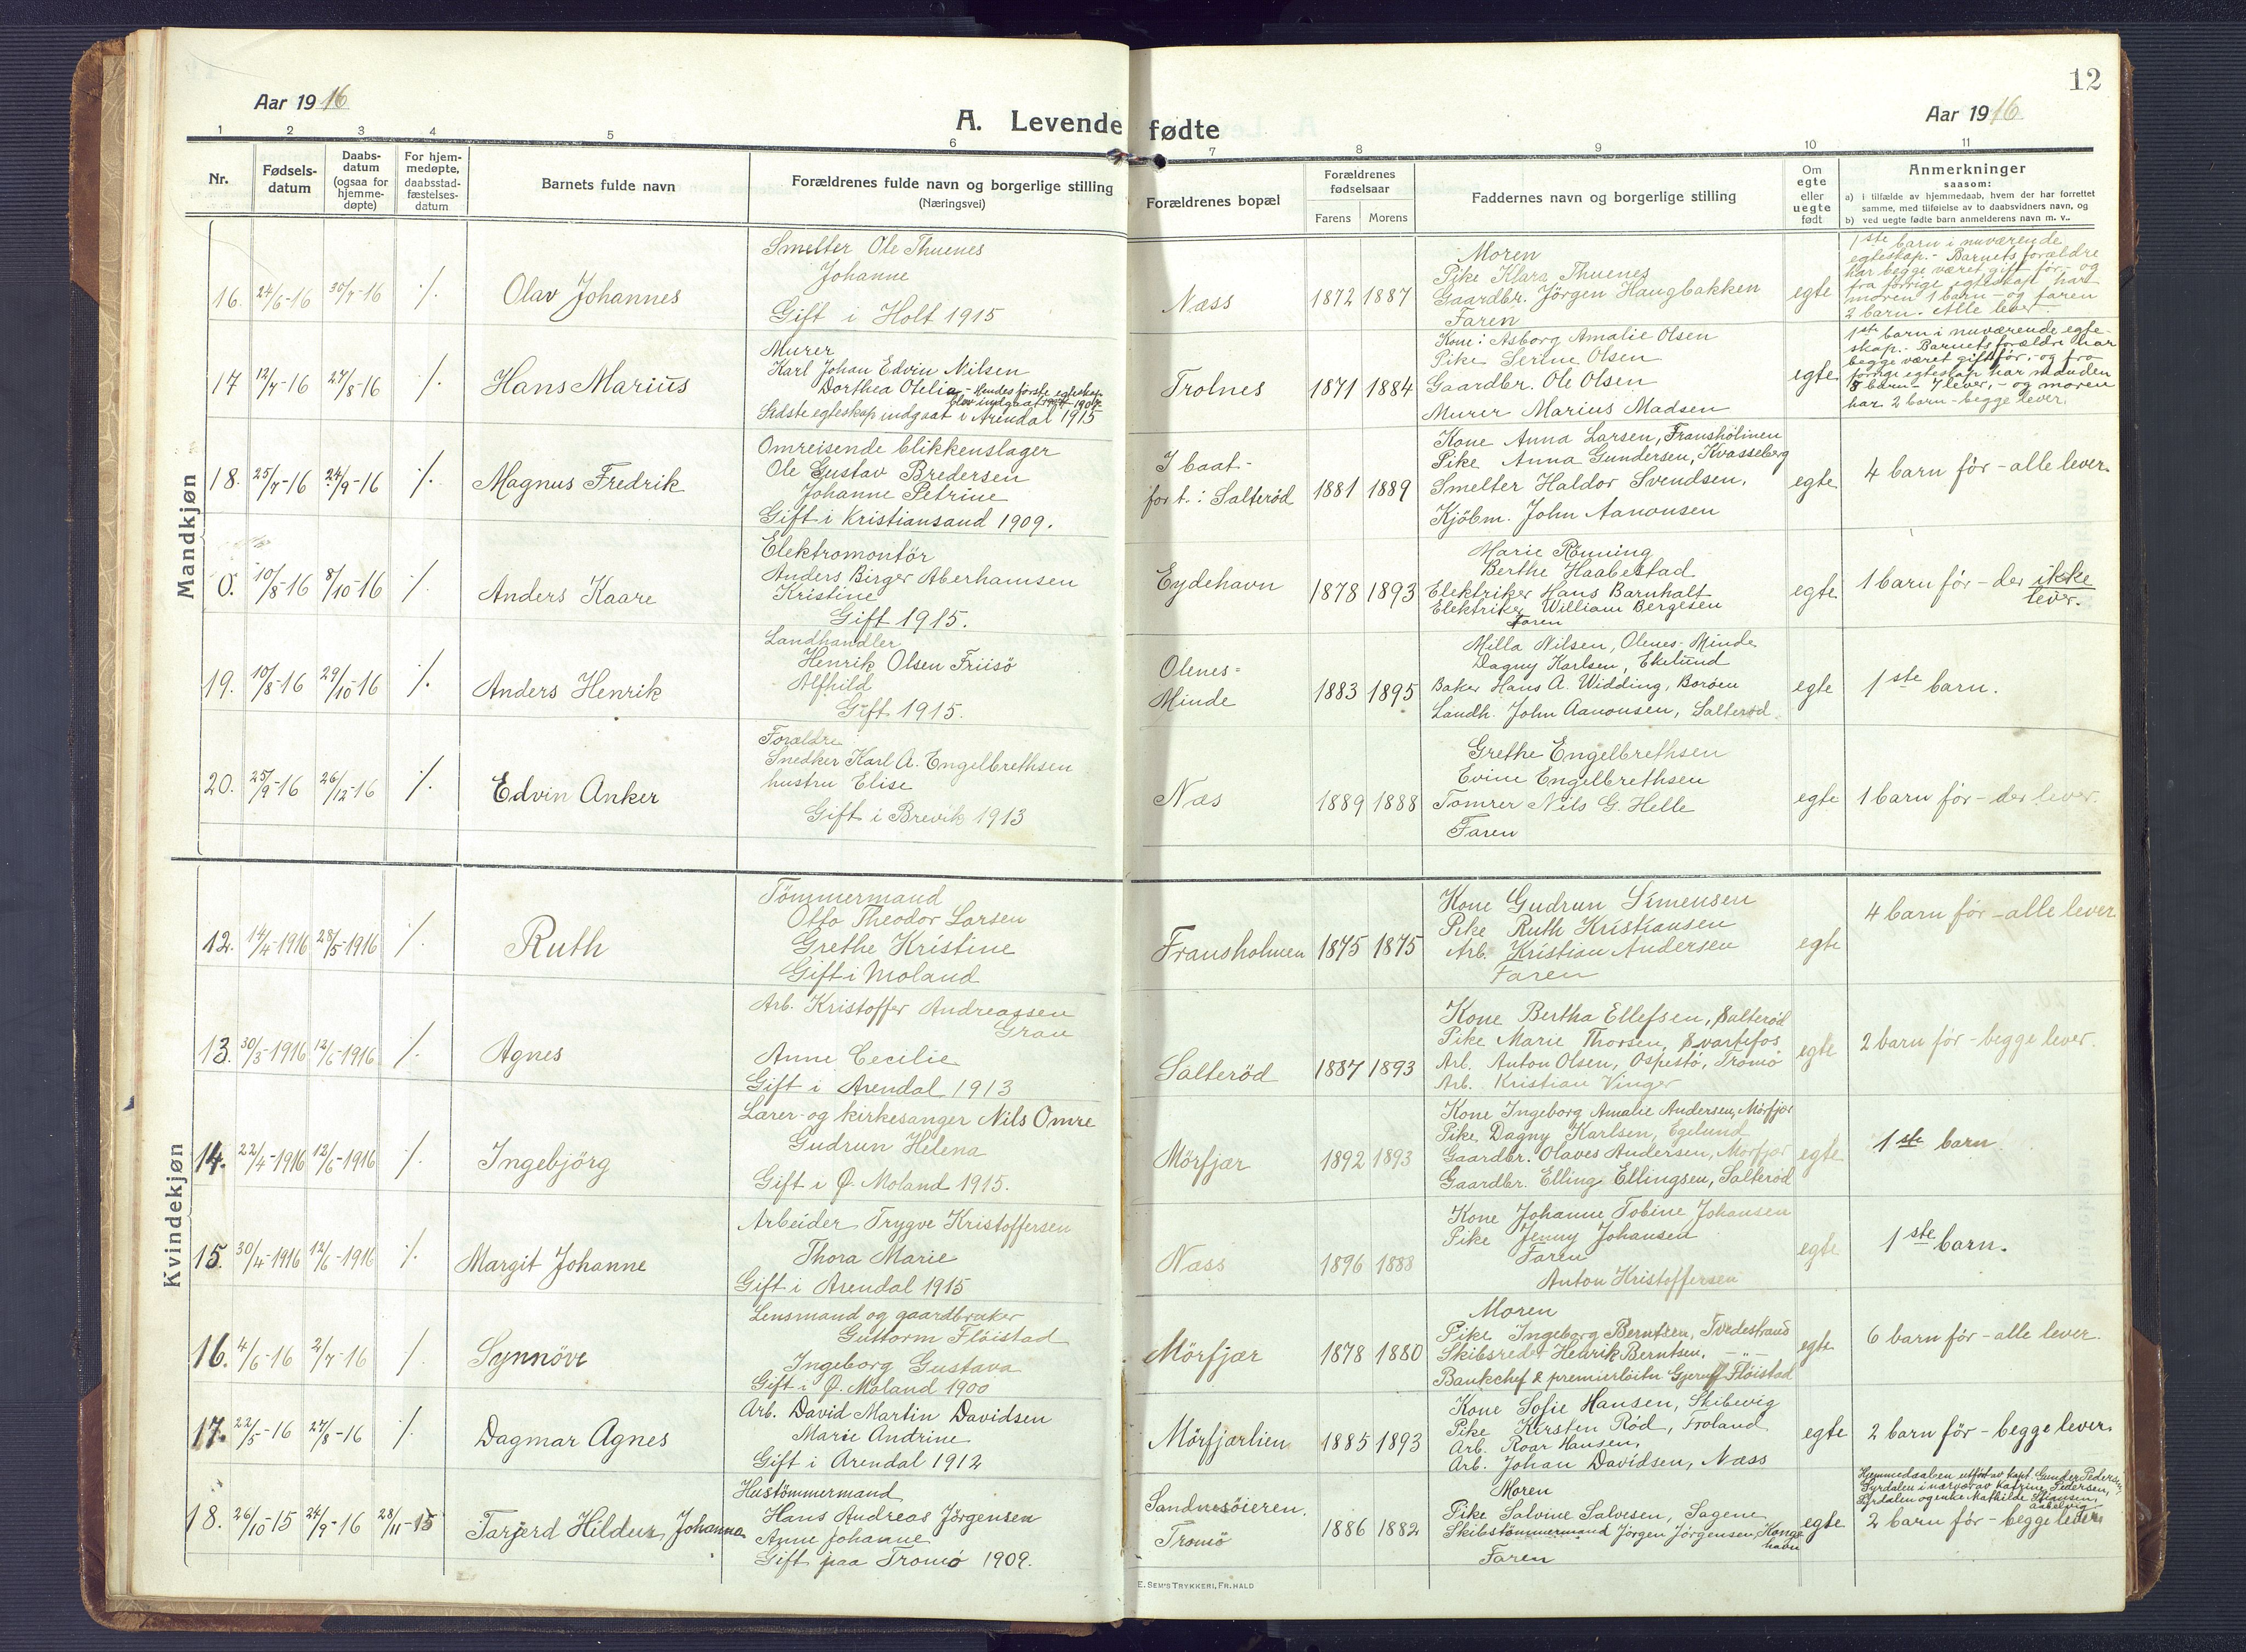 12
Aar 1916
Aar 1916
A. Levende fødte
1 2 3 4 5 6 7 8 9 10 11
Nr.
Fødsels-
datum
Daabs-
datum
(ogsaa for
hjemme-
døpte)
For hjem-
medøpte,
daabsstad-
fæstelses-
datum
Barnets fulde navn
Forældrenes fulde navn og borgerlige stilling
(Næringsvei)
Forældrenes bopæl
Forældrenes
fødselsaar
Farens Morens
Faddernes navn og borgerlige stilling
Om
egte
eller
uegte
født
Anmerkninger
saasom:
a) i tilfælde av hjemmedaab, hvem der har forrettet
samme, med tilføielse av to daabsvidners navn, og
b) ved uegte fødte barn anmelderens navn m. v..
Mandkjøn
16. 24/6-16 30/7-16 ./.
Olav Johannes
Smelter Ole Thuenes
Johanne
Gift i Holt 1915
Næss
1872 1887
Moren
Pike Klara Thuenes
Gaardbr. Jörgen Haugbakken
Faren
egte
1ste barn i nuværende
egteskap. - Barnets forældre
har begge været gift før, - og
fra forrige egteskap har
moren 1 barn - og faren
2 barn. Alle lever
17 12/7-16 27/8-16 ./.
Hans Marius
Murer
Karl Johan Edvin Nilsen
Dorthea Otelia - Hendes første egteskap
blev indgaat 1904
Sidste egteskap indgaat i Arendal 1915
Trolnes
1871 1884
Kone: Asborg Amalie Olsen
Pike Serine Olsen
Gaardbr. Ole Olsen
Murer Marius Madsen
egte
1ste barn i nuværende egte-
skap. Barnets forældre har
begge været gift før, - og fra
forrige egteskap har manden
8 barn - 7 lever, - og moren
har 2 barn - begge lever.
18. 25/7-16 24/9-16 ./.
Magnus Fredrik
Omreisende blikkenslager
Ole Gustav Bredersen
Johanne Petrine
Gift i Kristiansand 1909.
I baat -
for t.: Salteröd
1881 1889
Kone Anna Larsen, Fransholmen
Pike Anna Gundersen, Kvasseberg
Smelter Haldor Svendsen.
Kjöbm. John Aanonsen
egte
4 barn för - alle lever.
0. 10/8-16 8/10-16 ./.
Anders Kaare
Elektromontör
Anders Birger Aberhamsen
Kristine
Gift 1915.
Eydehavn
1878 1893
Marie Rönning
Berthe Haabestad
Elektriker Hans Barnholt
Elektriker William Bergesen
Faren
egte
1 barn för - der ikke
lever.
19. 10/8-16 29/10-16 ./.
Anders Henrik
Landhandler
Henrik Olsen Friisö
Alfhild
Gift 1915.
Olenes-
Minde
1883 1895
Milla Nilsen, Olenes-Minde
Dagny Karlsen, Ekelund
Baker Hans A. Widding, Boröen
Landh. John Aanonsen, Salteröd
egte
1ste barn.
20. 25/9-16 26/12-16 ./.
Edvin Anker
Forældre
Snedker Karl A. Engelbrethsen
hustru Elise
Gift i Brevik 1913
Næs
1889 1888
Grethe Engelbrethsen
Evine Engelbrethsen
Tömrer Nils G. Helle
Faren
egte
1 barn för - der lever.
Kvindekjøn
12. 14/4-1916 28/5-1916 ./.
Ruth
Tömmermand
Otto Theodor Larsen
Grethe Kristine
Gift i Moland
Fransholmen
1875 1875
Kone Gudrun Simensen
Pike Ruth Kristiansen
Arb. Kristian Andersen
Faren
egte
4 barn för - alle lever
13. 30/3-1916 12/6-1916 ./.
Agnes
Arb. Kristoffer Andreassen
Grau
Anne Cecilie
Gift i Arendal 1913
Salteröd
1887 1893
Kone Bertha Ellefsen, Salteröd
Pike Marie Thorsen, Svartefos
Arb. Anton Olsen, Ospestö, Tromö
Arb. Kristian Vinger
egte
2 barn för - begge lever.
14. 22/4-1916 12/6-1916 ./.
Ingebjörg
Lærer- og kirkesanger Nils Omre
Gudrun Helena
Gift i Ø. Moland 1915.
Mörfjær
1892 1893
Kone Ingeborg Amalie Andersen, Mörfjær
Pike Dagny Karlsen, Egelund
Gaardbr. Olaves Andersen, Mörfjær
Gaardbr. Elling Ellingsen, Salteröd
egte
1ste barn.
15. 30/4-1916 12/6-1916 ./.
Margit Johanne
Arbeider Trygve Kristoffersen
Thora Marie
Gift i Arendal 1915
Næss
1896 1888
Kone Johanne Tobine Johansen
Pike Jenny Johansen
Faren
Anton Kristoffersen
egte
1ste barn.
16. 4/6-16 2/7-16 ./.
Synnöve
Lensmand og gaardbruker
Guttorm Flöistad
Ingeborg Gustava
Gift i Ø. Moland 1900
Mörfjær
1878 1880
Moren
Pike Ingeborg Berntsen, Tvedestrand
Skibsreder Henrik Berntsen, - " -
Bankchef & premierlöitn Gjeruff Flöistad
egte
6 barn för - alle lever.
17. 22/5-16 27/8-16 ./.
Dagmar Agnes
Arb. David Martin Davidsen
Marie Andrine
Gift i Arendal 1912
Mörfjærlien
1885 1893
Kone Sofie Hansen, Skibevig
Pike Kirsten Röd, Froland
Arb. Roar Hansen,
Arb. Johan Davidsen, Næss
egte
2 barn för - begge lever.
18. 26/10-15 24/9-16 28/11-15
Tarjerd Hildur Johanne
Hustömmermand
Hans Andreas Jörgensen
Anne Johanne
Gift paa Tromö 1909.
Sandnesöieren.
Tromö
1886 1882
Moren
Pike Salvine Salvesen, Sagene
Skibstömmermand Jörgen Jörgensen, Konge-
havn
Faren
egte
Hjemmedaaben utført av kapt. Gunder Pedersen,
Pyrdalen i nærvær av Katrine Pedersen,
Pyrdalen og enke Mathilde Stiansen,
Aabelvig
2 barn för - begge lever
E. SEM'S TRYKKERI, FR. HALD